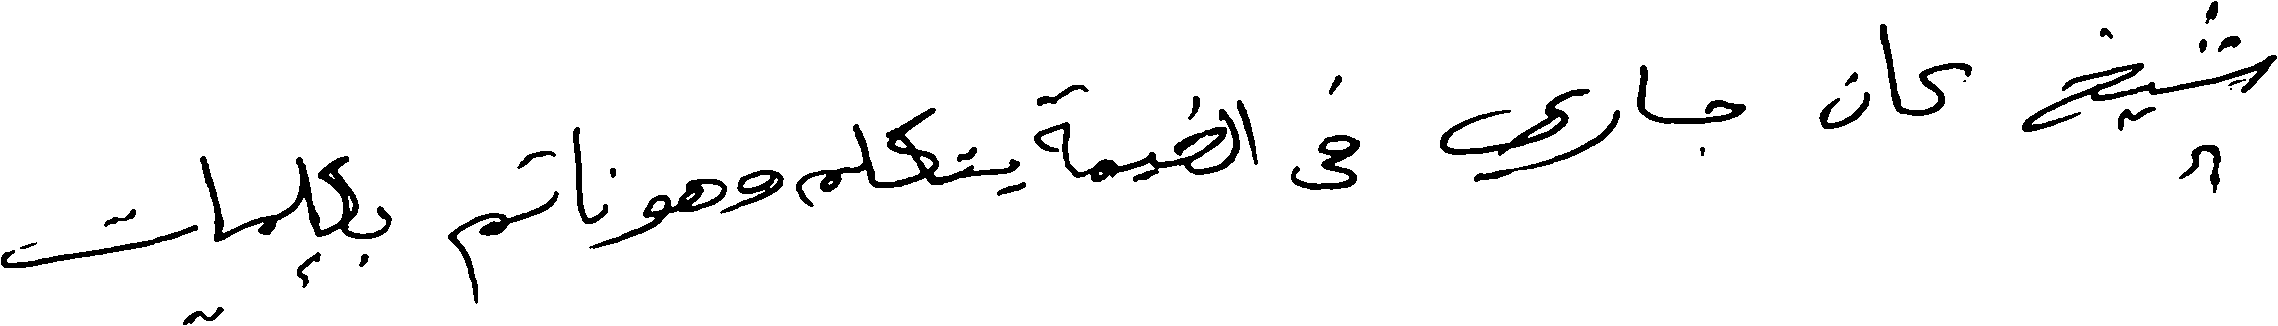 شيخ كان جاري في الخيمة يتكلم وهو نائم بكلمات